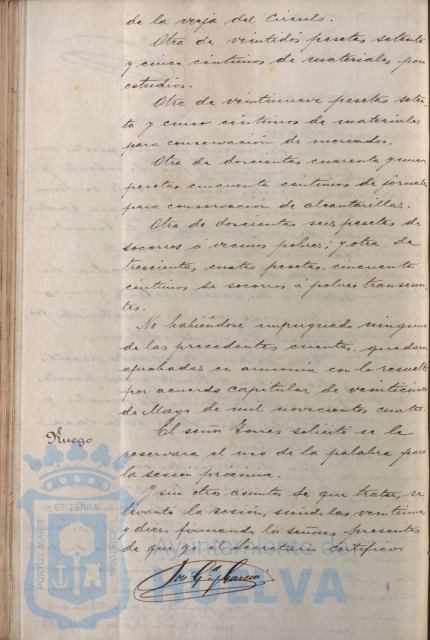 de la verja del Circulo.
Otra de veintidós pesetas setenta
y cinco céntimos de materiales para
estudios.
Otra de veintinueve pesetas seten-
ta y cinco céntimos de materiales
para conservación de mercados.
Otra de doscientas cuarenta y una
pesetas cincuenta céntimos de jornales
para conservación de alcantarillas.
Otra de doscientas seis pesetas de
socorros a vecinos pobres; y otra de
trescientas cuatro pesetas, cincuenta
céntimos de socorros a pobres transeun-
tes.
No habiéndose impugnado ninguna
de las precedentes cuentas, quedaron
aprobadas en armonia con lo resuelto
por acuerdo capitular de veinticinco
de Mayo de mil novecientos cuatro.
Ruego
El señor Torres solicitó se le
reservara el uso de la palabra para
la sesión próxima.
Y sin otros asuntos de que tratar, se
levantó la sesión, siendo las veintiuna
y diez, firmando los señores presentes
de que yo el Secretario certifico.
García
ET TERRA
PORTUS MARIS
CUSTODIA
Ayuntamiento de
HUELVA